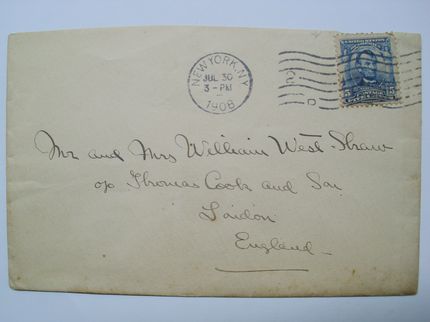 NEW YORK, N.Y.
JUL 30
3 - PM
1908
5 5
Mr and Mrs William West-Shaw
c/o Thomas Cook and Son
London
England